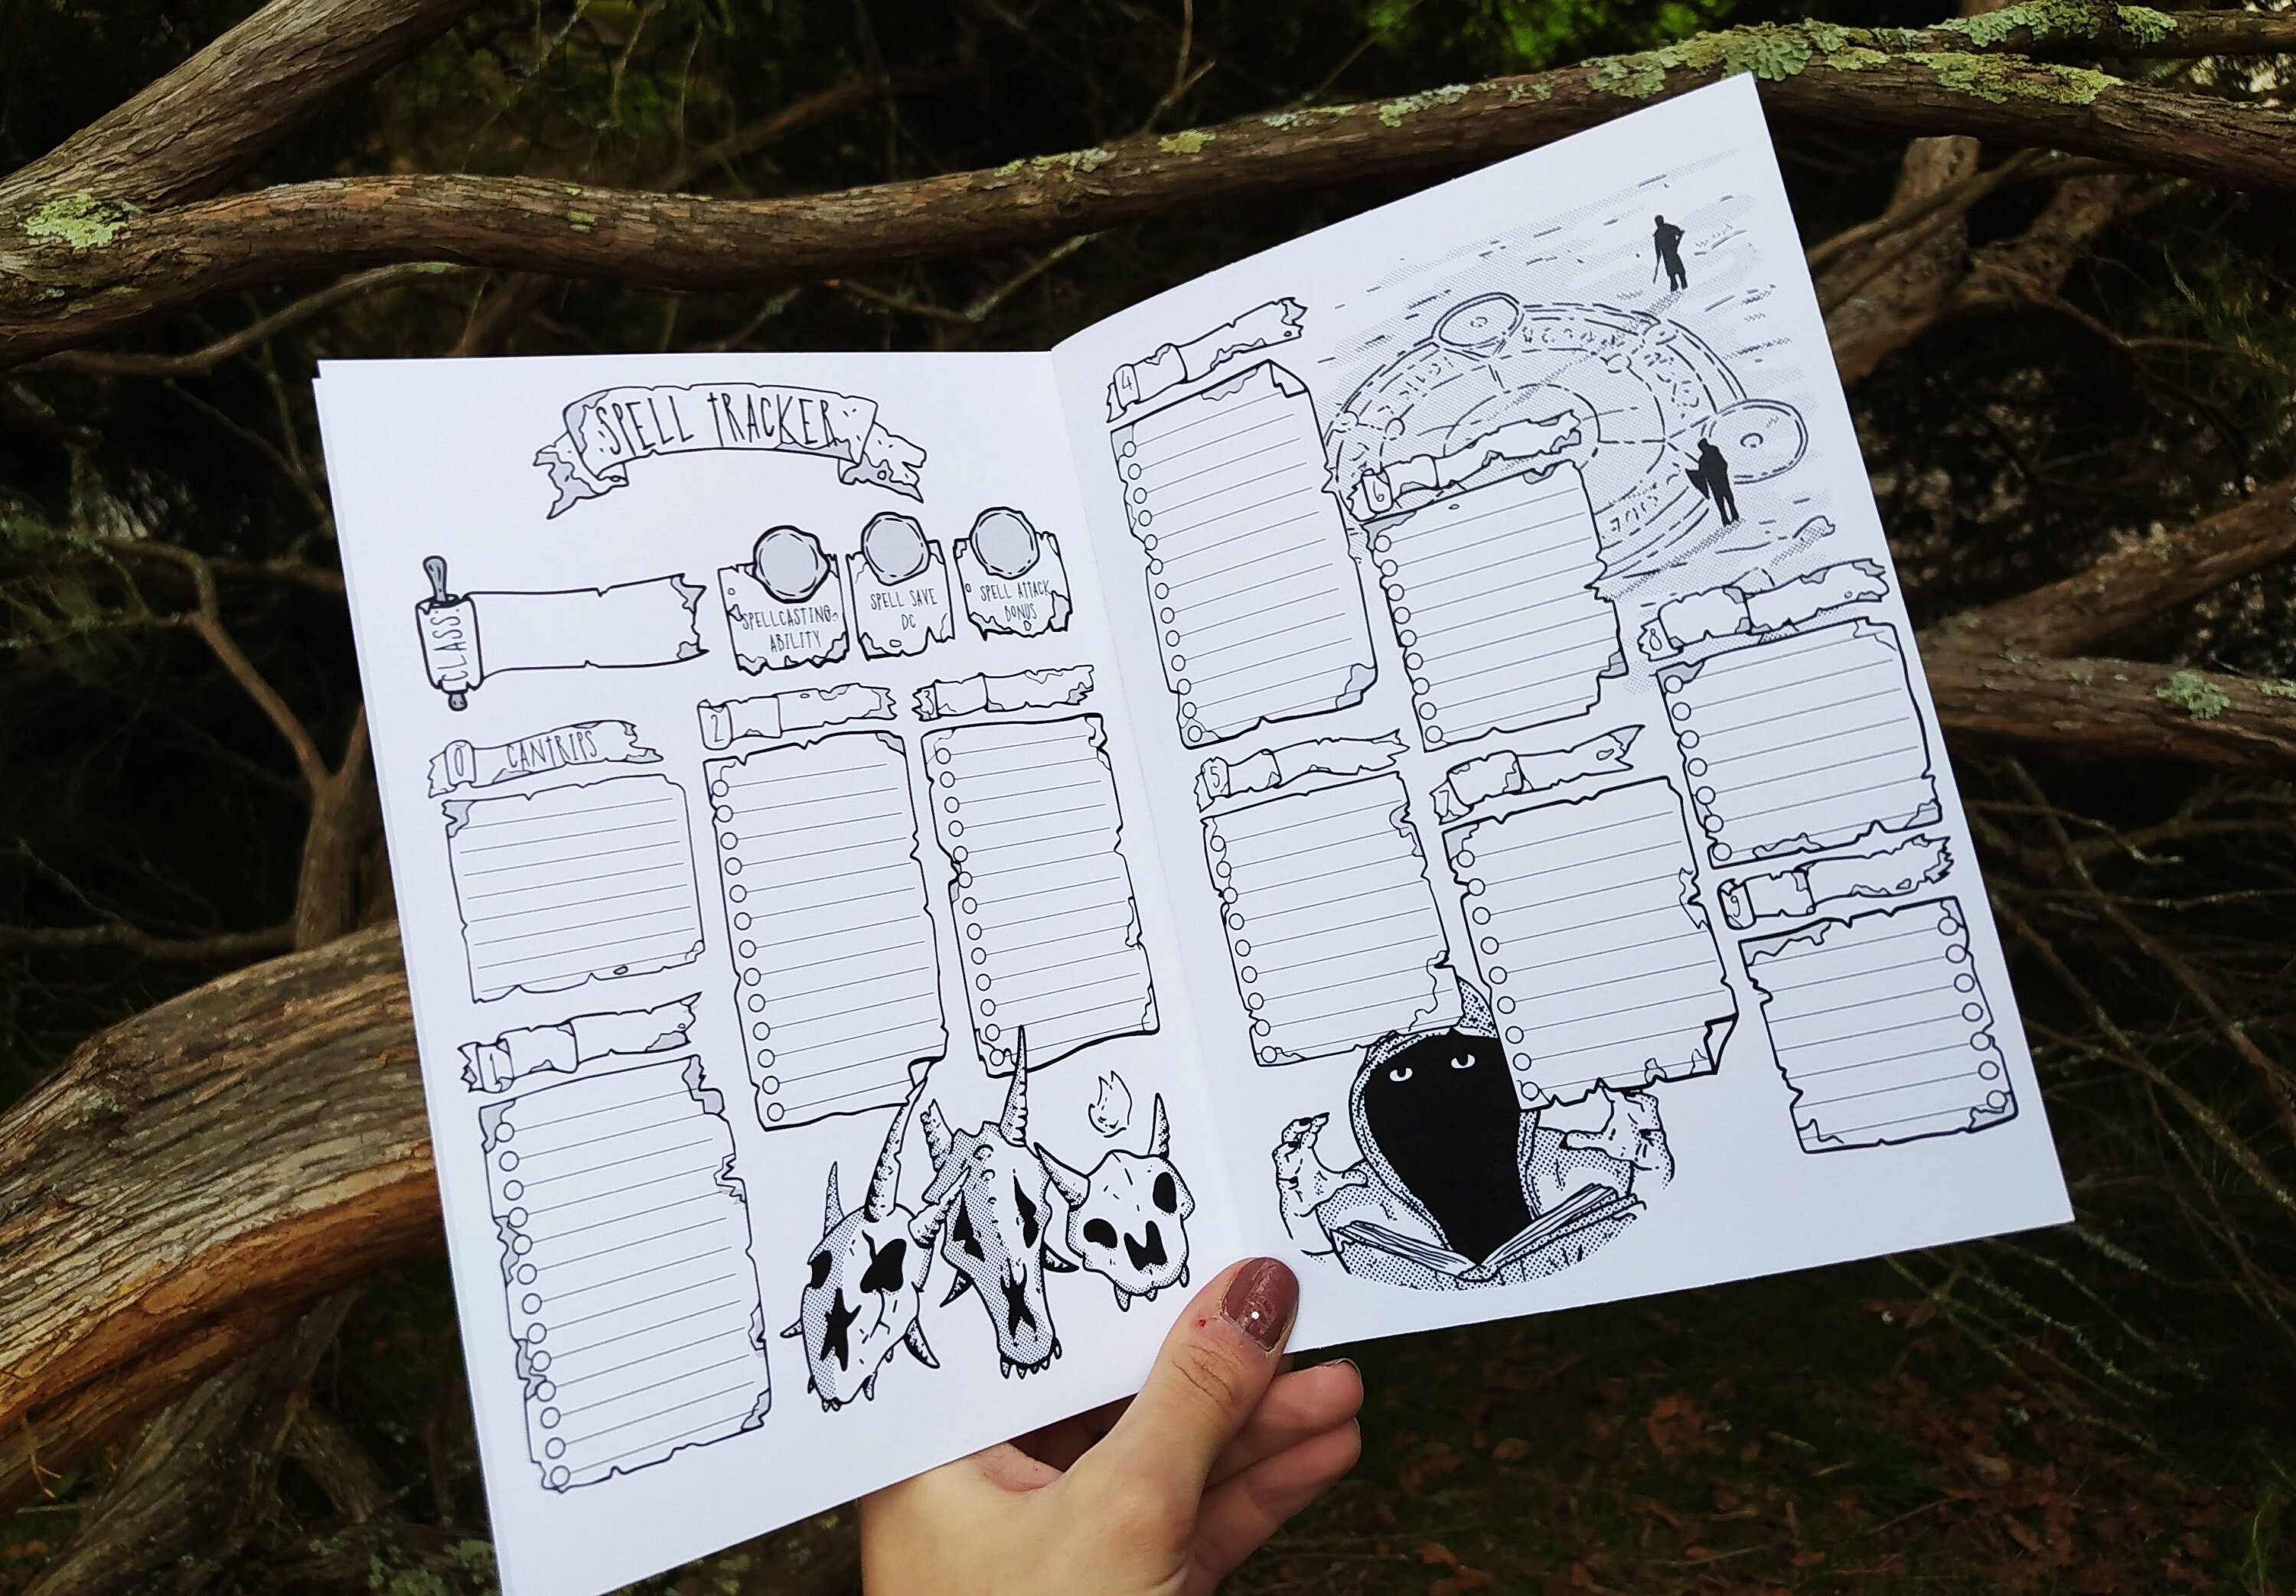 SPELL TRACKER
CLASS
SPELLCASTING
ABILITY
SPELL SAVE
DC
SPELL ATTACK
BONUS
0 CANTRIPS
1
2
3
4
5
6
7
8
9